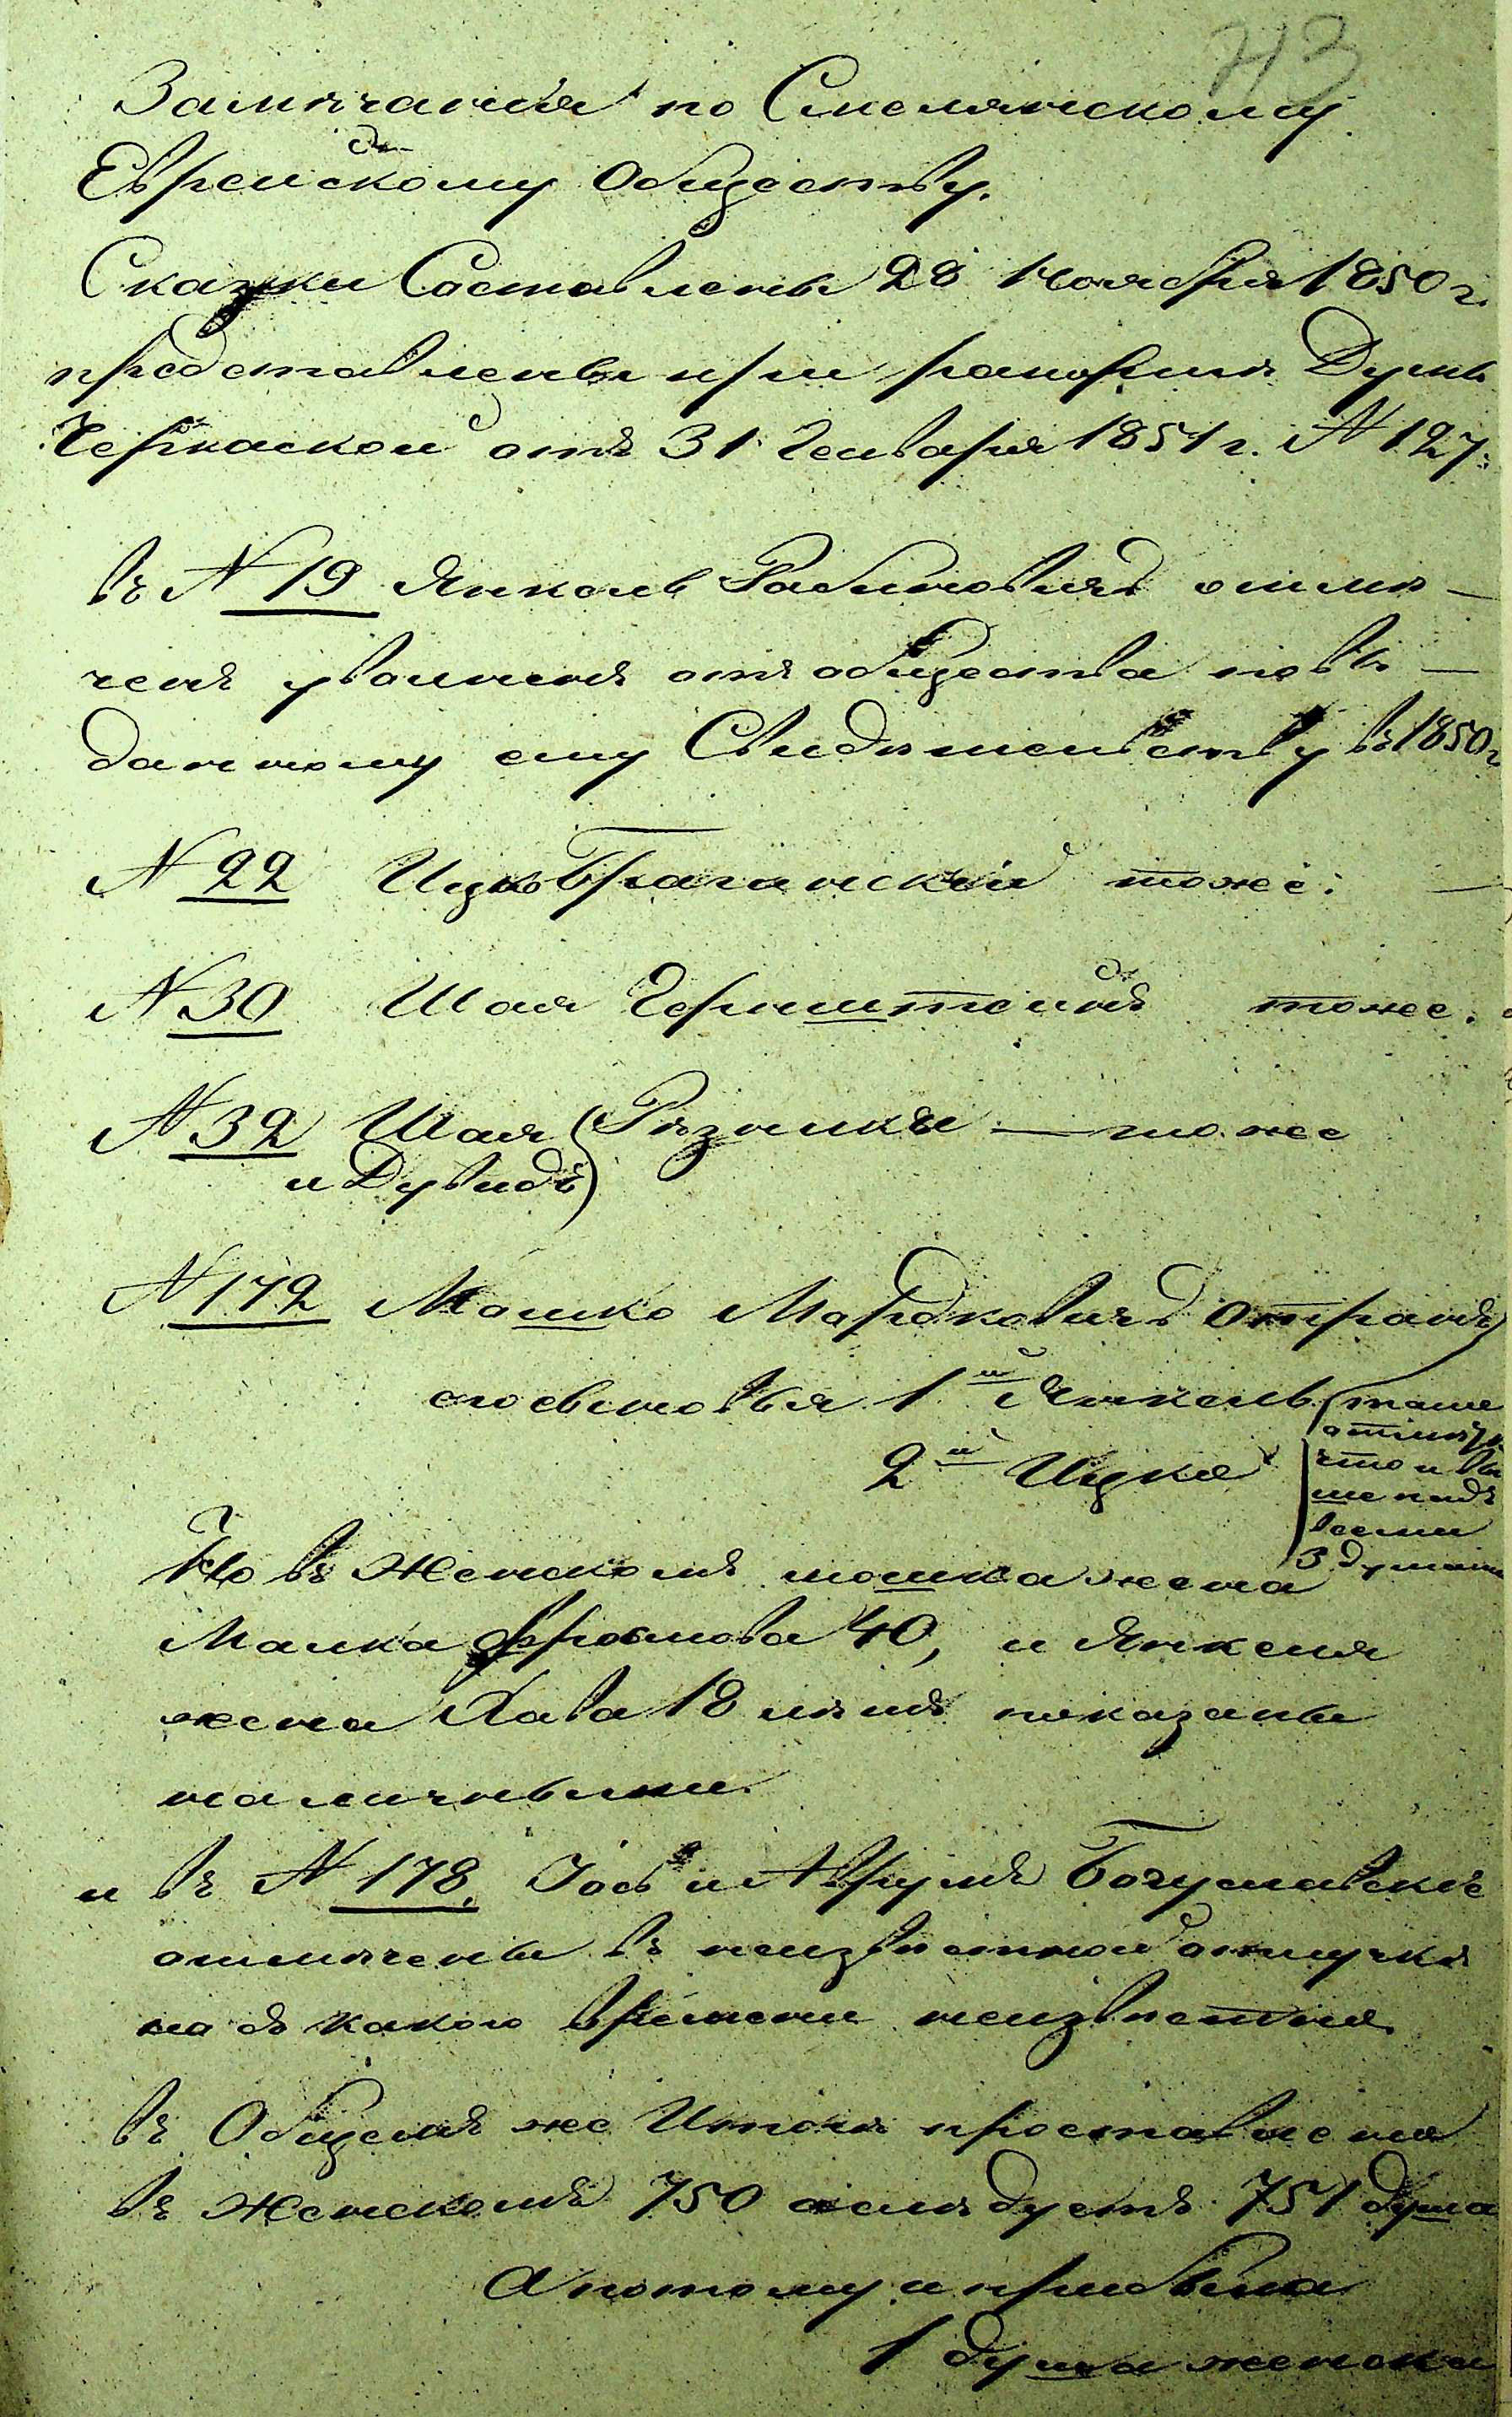 43
Замѣчанія по Смелянскому
Еврейскому Обществу.
Сказки Составлены 28 Ноября 1850 г.
представлены при рапортѣ Думы
Черкаской отъ 31 Генваря 1851 г. № 127.
въ № 19 Янкель Рабиновичъ отмѣ-
ченъ уволенъ отъ общества по вы-
данному ему Свидѣтельству въ 1850 г
№ 22 Ицко Браганскій тоже.
№ 30 Шая Герштейнъ тоже.
№ 32 Шая Рѣзники — тоже
и Дувидъ
№ 172 Мошко Мардковичъ
сыновья 1й Янкель
2й Ицко
также
отмѣч
что и вы
ше надъ
всеми
3 душами
Но въ Женскомъ мошка жена
Малка Фроимова 40, и Янкеля
жена Хава 18 лѣтъ показаны
наличными
и въ № 178. Іось и Аврумъ Богуславскіе
отмѣчены въ неизвѣстной отлучкѣ
но съ какого времени неизвѣстно
въ Общемъ же Итогѣ проставлено
въ Женскомъ 750 а слѣдуетъ 751 душа
А потому и прибыла
1 душа женска